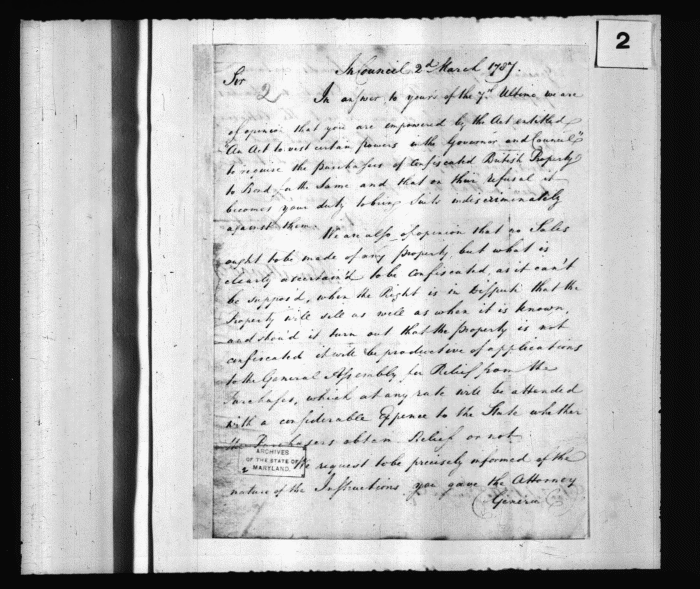 2
In Council 2d March 1787.
Sir
2
In answer to yours of the 7th Ultimo we are
of opinion that you are empowered by the Act entitled
"An Act to vest certain powers in the Governor and Council"
to require the purchasers of Confiscated British Property
to Bond in the Same and that on their refusal it
becomes your duty to bring Suits indiscriminately
against them.
We are also of opinion that no Sales
ought to be made of any Property, but what is
clearly ascertain'd to be confiscated, as it can't
be suppos'd, when the Right is in Dispute that the
Property will sell as well as when it is known,
and shou'd it turn out that the Property is not
confiscated it will be productive of applications
to the General Assembly for Relief from the
Purchases, which at any rate will be attended
with a considerable Expence to the State whether
the Purchasers obtain Relief or not
ARCHIVES
OF THE STATE OF
MARYLAND.
We request to be precisely informed of the
nature of the Instructions you gave the Attorney
General